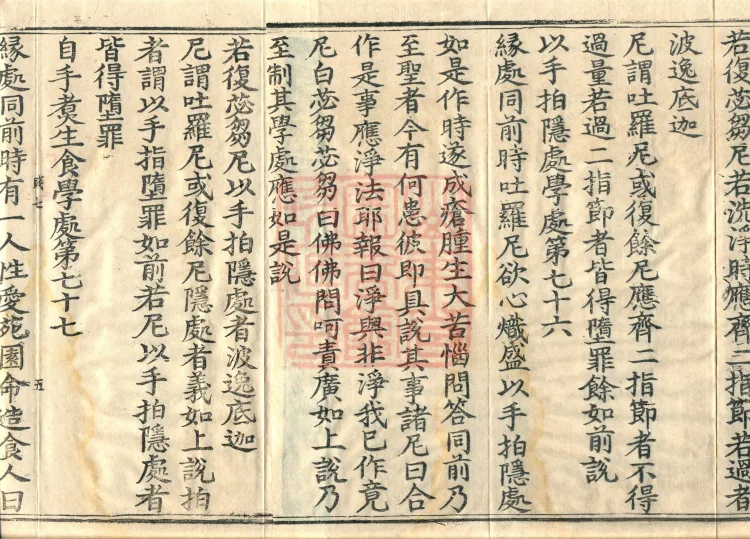 若復苾芻尼若洗淨時應齊二指節若過者
波逸底迦
尼謂吐羅尼或復餘尼應齊二指節者不得
過量若過二指節者皆得墮罪餘如前說
以手拍隱處學處第七十六
緣處同前時吐羅尼欲心熾盛以手拍隱處
如是作時遂成瘡腫生大苦惱問答同前乃
至聖者今有何患彼即具說其事諸尼曰合
作是事應淨法耶報曰淨與非淨我已作竟
尼白苾芻苾芻曰佛佛問呵責廣如上說乃
至制其學處應如是說
若復苾芻尼以手拍隱處者波逸底迦
尼謂吐羅尼或復餘尼隱處者義如上說拍
者謂以手指墮罪如前若尼以手拍隱處者
皆得墮罪
自手煑生食學處第七十七
賤七
五
緣處同前時有一人性愛苑園命造食人曰